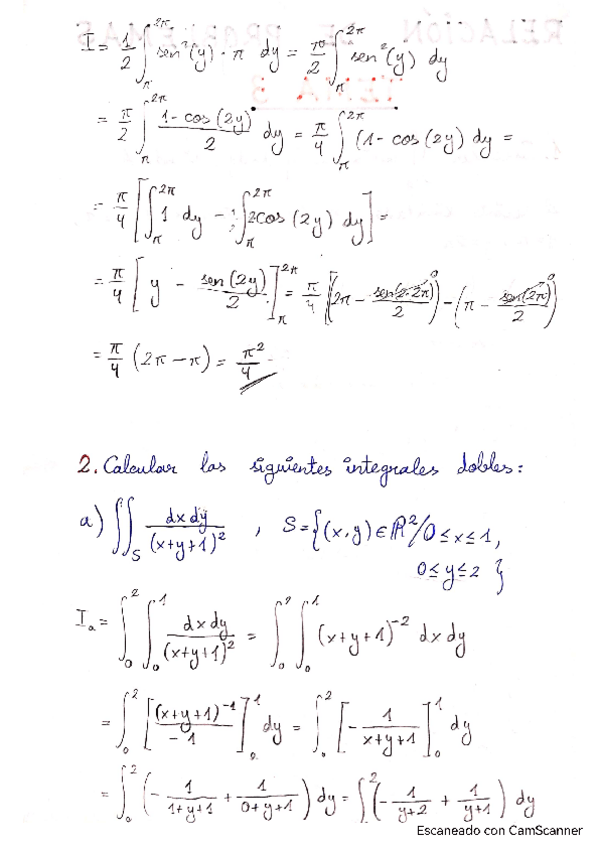 RELACIÓN DE PROBLEMAS
TEMA 3
I = 1/2 ∫_π^{2π} sen²(y) · π dy = π/2 ∫_π^{2π} sen²(y) dy
= π/2 ∫_π^{2π} (1 - cos(2y))/2 dy = π/4 ∫_π^{2π} (1 - cos(2y)) dy =
= π/4 [∫_π^{2π} 1 dy - ∫_π^{2π} cos(2y) dy] =
= π/4 [y - sen(2y)/2]_π^{2π} = π/4 [(2π - sen(2·2π)/2) - (π - sen(2π)/2)]
= π/4 (2π - π) = π²/4
2. Calcular las siguientes integrales dobles:
a) ∬_S dx dy/(x+y+1)² , S = {(x,y) ∈ ℝ² / 0 ≤ x ≤ 1,
0 ≤ y ≤ 2 }
I_a = ∫_0^2 ∫_0^1 dx dy/(x+y+1)² = ∫_0^2 ∫_0^1 (x+y+1)^{-2} dx dy
= ∫_0^2 [(x+y+1)^{-1}/-1]_0^1 dy = ∫_0^2 [- 1/(x+y+1)]_0^1 dy
= ∫_0^2 (- 1/(1+y+1) + 1/(0+y+1)) dy = ∫^2 (- 1/(y+2) + 1/(y+1)) dy
Escaneado con CamScanner